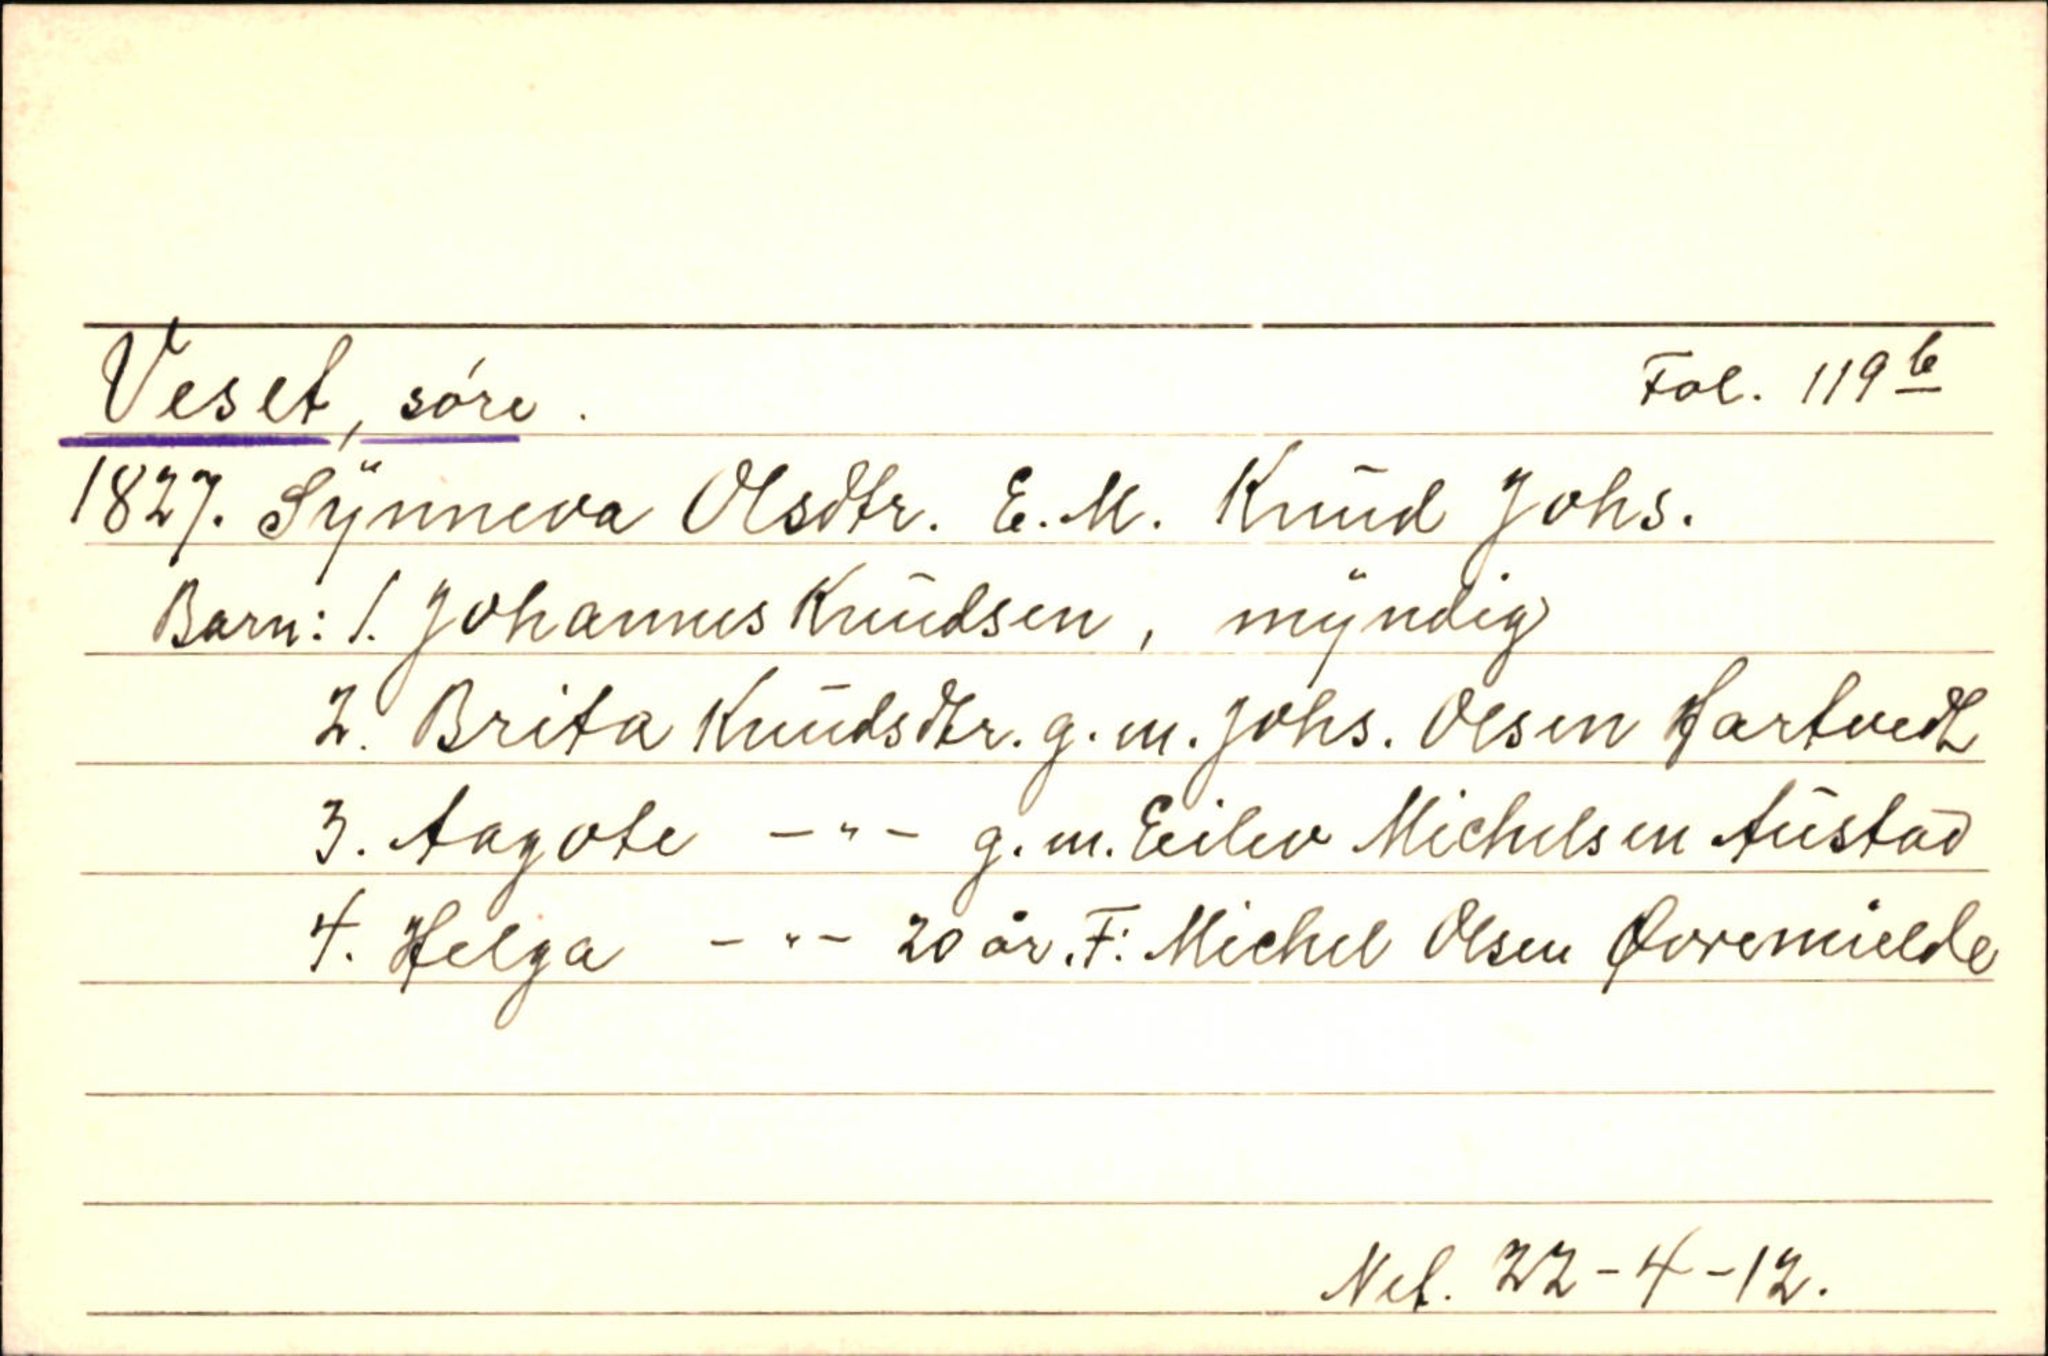 Veset, søre. Fol. 119 b
1827. Sÿnneva Olsdtr. E. M. Knud Johs.
Barn: 1. Johannes Knudsen, mÿndig
2. Brita Knudsdtr. g. m. Johs. Olsen Hartvedt
3. Aagote -"- g. m. Eilev Michelsen Austad
4. Helga -"- 20 år. F: Michel Olsen Øvremielde
Net. 22-4-12.